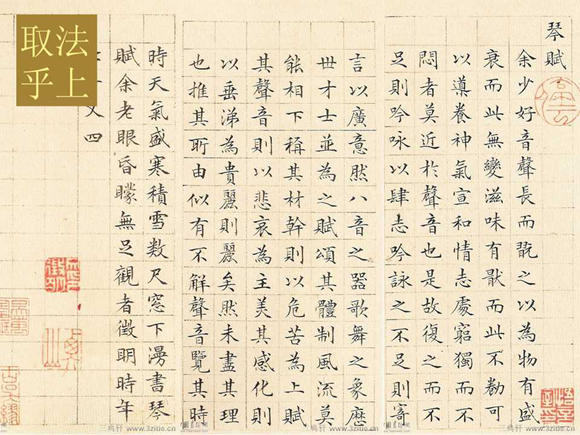 取法
乎上
琴賦
余少好音聲長而翫之以為物有盛
衰而此無變滋味有猒而此不勌可
以導養神氣宣和情志處窮獨而不
悶者莫近於聲音也是故復之而不
足則吟咏以肆志吟詠之不足則寄
言以廣意然八音之器歌舞之象歷
世才士並為之賦頌其體制風流莫
能相下稱其材幹則以危苦為上賦
其聲音則以悲哀為主美其感化則
以垂涕為貴麗則麗矣然未盡其理
也推其所由似有不解聲音覽其時
時天氣盛寒積雪數尺窓下漫書琴
賦余老眼昏矇無足觀者徵明時年
又四